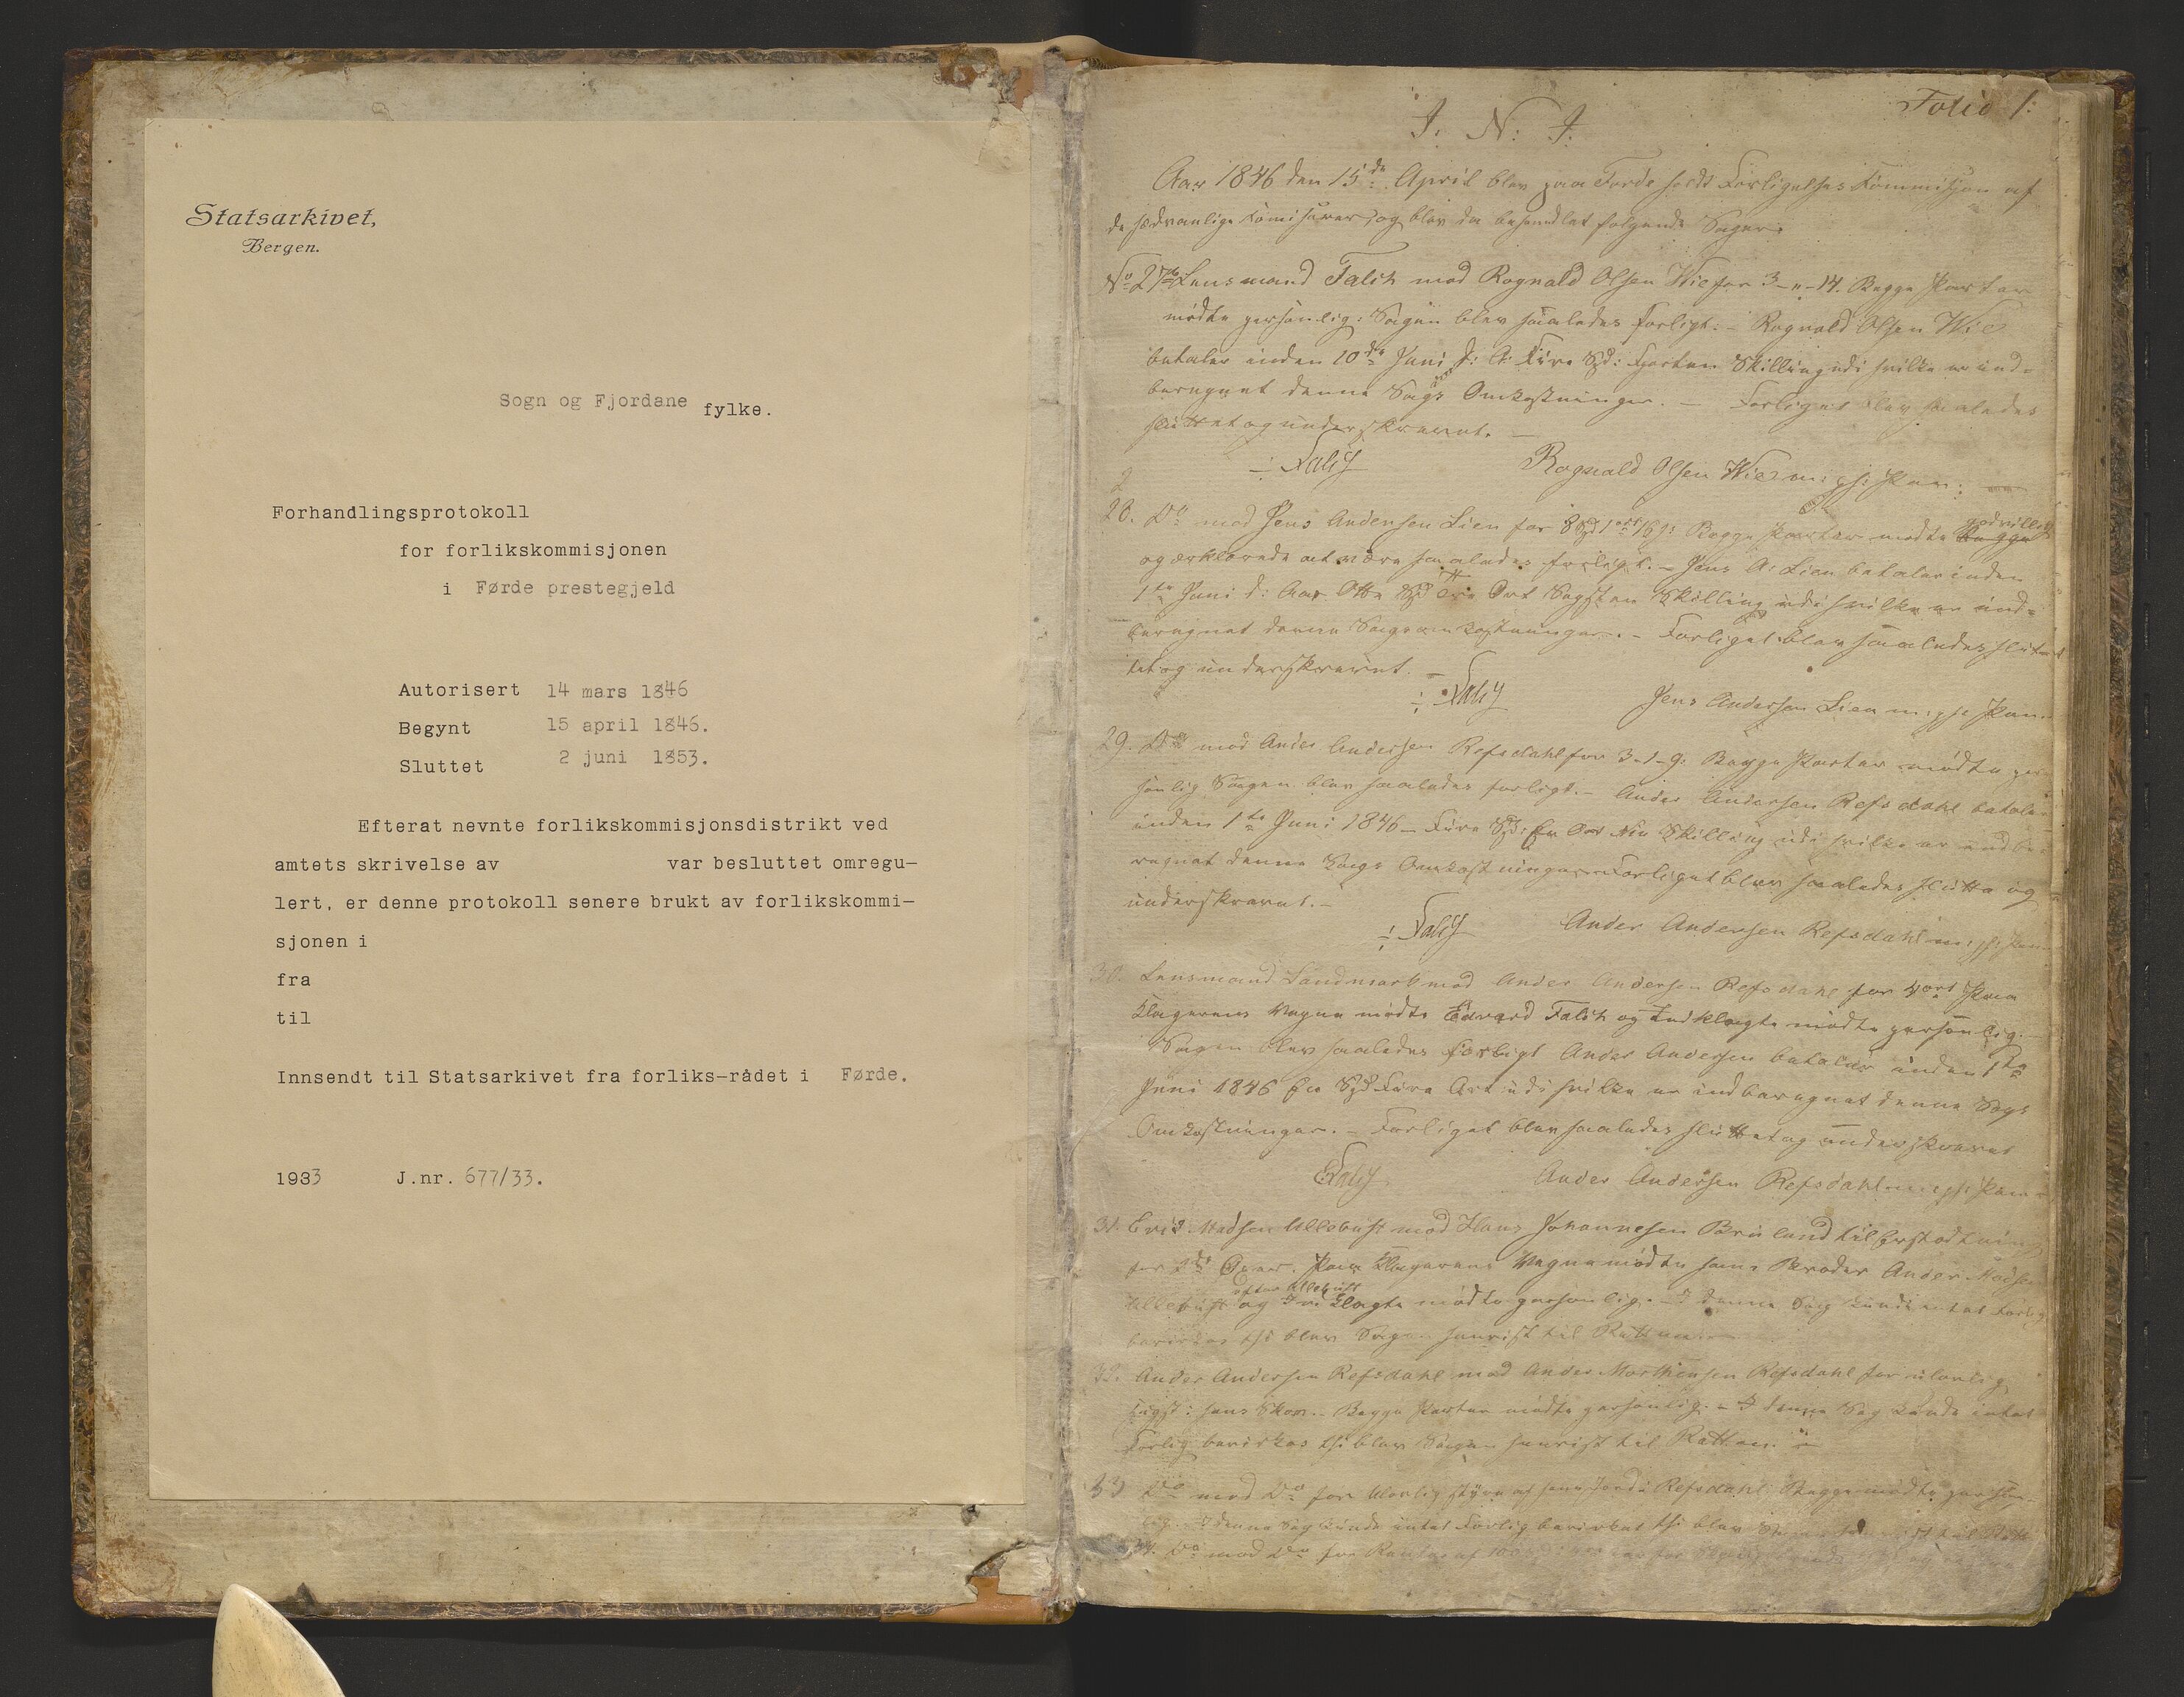 Statsarkivet,
Bergen.
Sogn og Fjordane fylke.
Forhandlingsprotokoll
for forlikskommisjonen
i Førde prestegjeld
Autorisert 14 mars 1846
Begynt 15 april 1846.
Sluttet 2 juni 1853.
Efterat nevnte forlikskommisjonsdistrikt ved
amtets skrivelse av var besluttet omregu-
lert, er denne protokoll senere brukt av forlikskommi-
sjonen i
fra
til
Innsendt til Statsarkivet fra forliks-rådet i Førde.
1933 J.nr. 677/33.
Folio 1:
I: N: I:
Aar 1846 den 15de April blev paa Førde holdt Forligelses Commisjon af
de sædvanlige Comisærer, og blev da behandlet følgende Sager:
No 27de Lensmand Falch mod Rognald Olsen Wie for 3-"-14. Begge Parter
mødte personlig: Sagen blev saaledes forligt. - Rognald Olsen Wie
betaler inden 10de Juni d: A: Fire Spd: Fjorten Skilling udi hvilke er ind-
beregnet denne Sags Omkostninger. - Forliget blev saaledes
sluttet og underskrevet. -
Falch Rognald Olsen Wie m: p: Pen:
28. Do mod Jens Andersen Lien for 8 Spd 1 ort 16 s: Begge Parter mødte godvillig
og erklærede at være saaledes forligt. - Jens A: Lien betaler inden
1te Juni d: Aar Otte Spd Ort Sexten Skilling udi hvilke er ind-
beregnet denne Sags omkostninger. - Forliget blev saaledes slut-
tet og underskrevet. -
Falch Jens Andersen Lien m: p: Pen
29. Do mod Ander Andersen Refsdahl for 3-1-9: Begge Parter mødte per-
sonlig Sagen blev saaledes forligt. - Ander Andersen Refsdahl betaler
inden 1te Juni 1846 - Fire Spd: En Ort Nie Skilling udi hvilke er indbe-
regnet denne Sags Omkostninger Forliget blev saaledes slutte og
underskrevet. -
Falch Ander Andersen Refsdahl m: p: Pen
30. Lensmand Landmark mod Ander Andersen Refsdahl for 4 ort Paa
Klagerens Vegne mødte Edvard Falch og Indklagte mødte personlig. -
Sagen blev saaledes forligt Ander Andersen betaler inden 1te
Juni 1846 En Spd Fire Ort udi hvilke er indberegnet denne Sags
Omkostninger. - Forliget blev saaledes sluttet og underskrevet
EFalch Ander Andersen Refsdahl m: p: Pen
31. Erik Madsen Ullebust mod Hans Johannesen Bruland til Erstatning
for Paa Klagerens Vegne mødte hans Broder Ander Madsen
Ullebust og Indklagte mødte personlig. - I denne Sag kunde intet Forlig
bevirkes thi blev Sagen henvist til Retten. -
32. Ander Andersen Refsdahl mod Ander Morthensen Refsdahl for ulovlig
Hugst i hans Skov. - Begge Parter mødte personlig. - I denne Sag kunde intet
Forlig bevirkes thi blev Sagen henvist til Retten. -
33 Do mod Do for Ulovlig af hans Jord i Refsdahl Begge mødte person-
lig. - I denne Sag kunde intet Forlig bevirkes thi blev
34. Do mod Do for